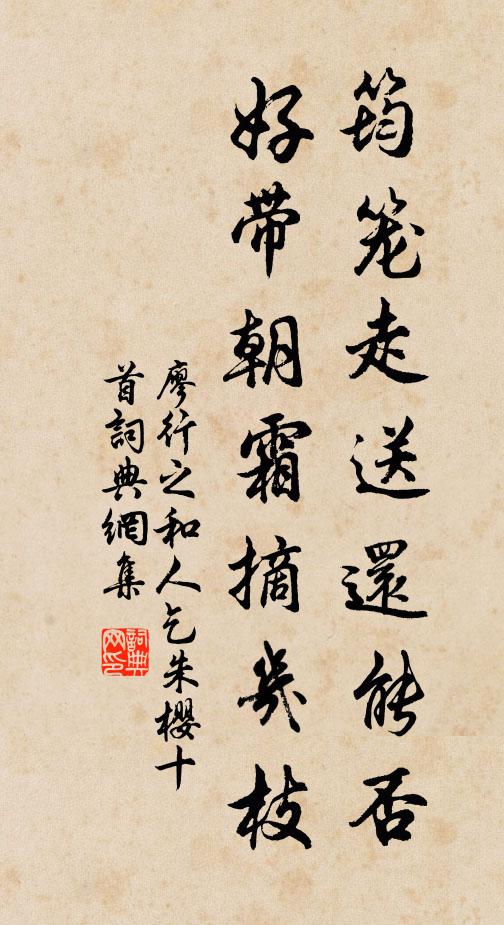 筠笼走送還能否
好带朝霜摘幾枝
廖行之和人乞朱櫻十
首詞典網集
詞典
网印